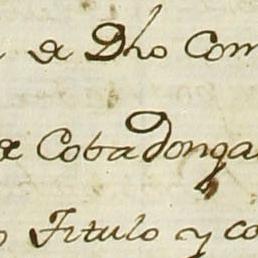 de Dho Com
de Cobadonga
Titulo y co